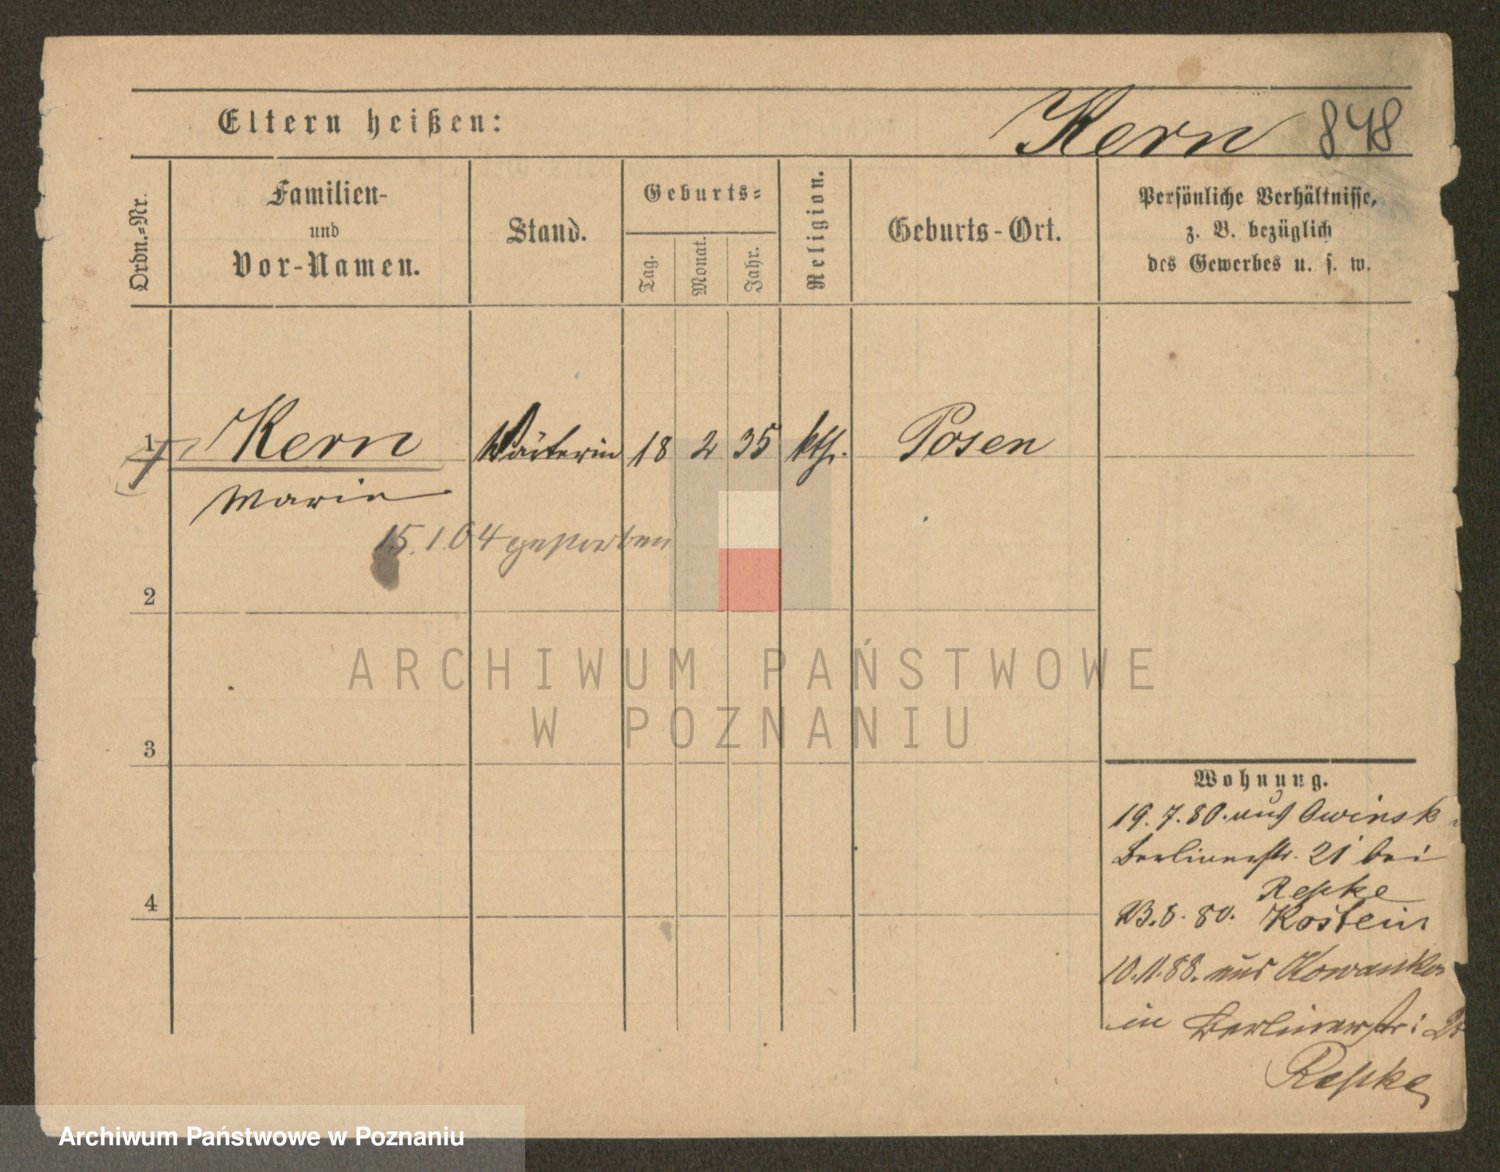 Eltern heißen: Kern 848
Ordn.=Nr.
Familien-
und
Vor-Namen.
Stand.
Geburts=
Tag.
Monat.
Jahr.
Religion.
Geburts-Ort.
Persönliche Verhältnisse,
z. B. bezüglich
des Gewerbes u. s. w.
1 Kern Wärterin 18 2 35 kth. Posen
Marie
15.1.04 gestorben
2
3
4
ARCHIWUM PAŃSTWOWE
W POZNANIU
Wohnung.
19.7.80. aus Owinsk
Berlinerstr. 21 bei
Repke
23.8.80. Kosten
10.11.88. aus Kowanko
in Berlinerstr:
Repke
Archiwum Państwowe w Poznaniu